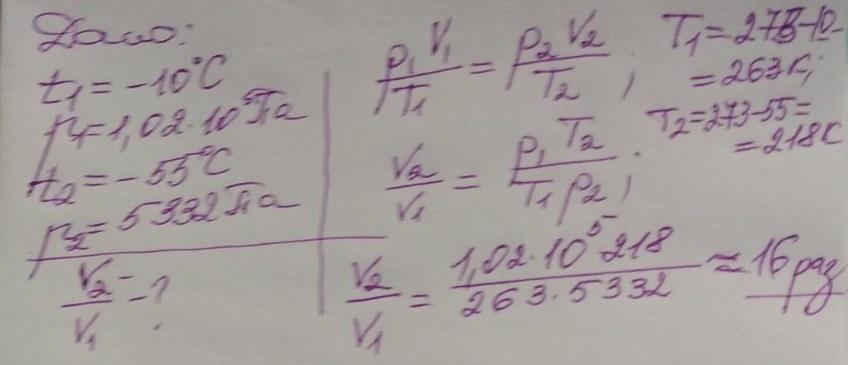 Дано:
t₁ = -10°C
p₁ = 1,02·10⁵ Па
t₂ = -55°C
p₂ = 5332 Па
V₂/V₁ - ?
p₁V₁/T₁ = p₂V₂/T₂ ;
T₁ = 273-10=
= 263К;
T₂ = 273-55=
= 218К
V₂/V₁ = p₁T₂/T₁p₂ ;
V₂/V₁ = 1,02·10⁵·218/263·5332 ≈ 16 раз